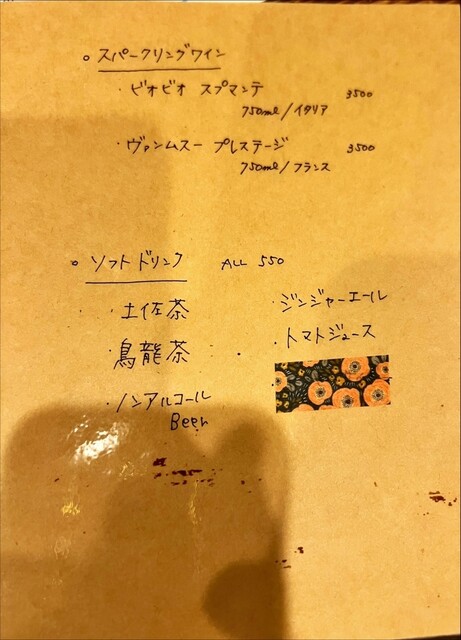 。スパークリングワイン
・ビオビオ スプマンテ 3500
750ml/イタリア
・ヴァンムスー プレステージ 3500
750ml/フランス
。ソフトドリンク ALL 550
・土佐茶
・ジンジャーエール
・烏龍茶
・トマトジュース
・ノンアルコール
Beer